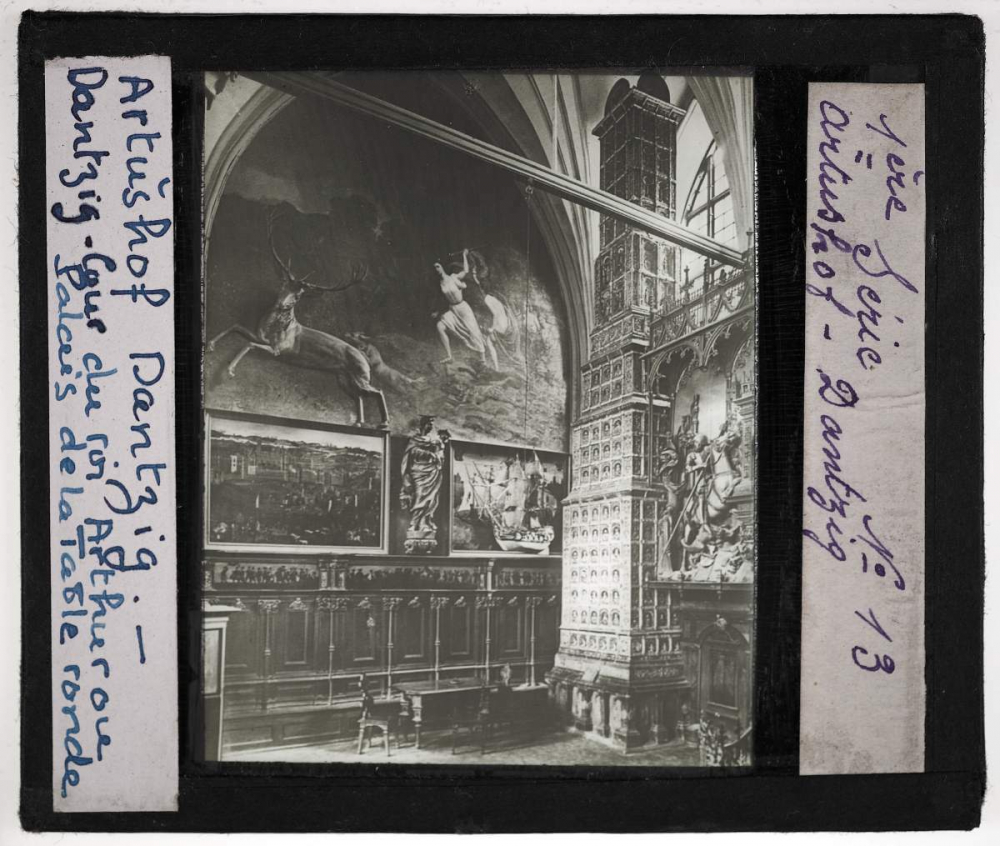 Artushof Dantzig. —
Dantzig - Cour du roi Arthur ou
Palais de la Table ronde
1ère Série. N° 13
Artushof - Dantzig